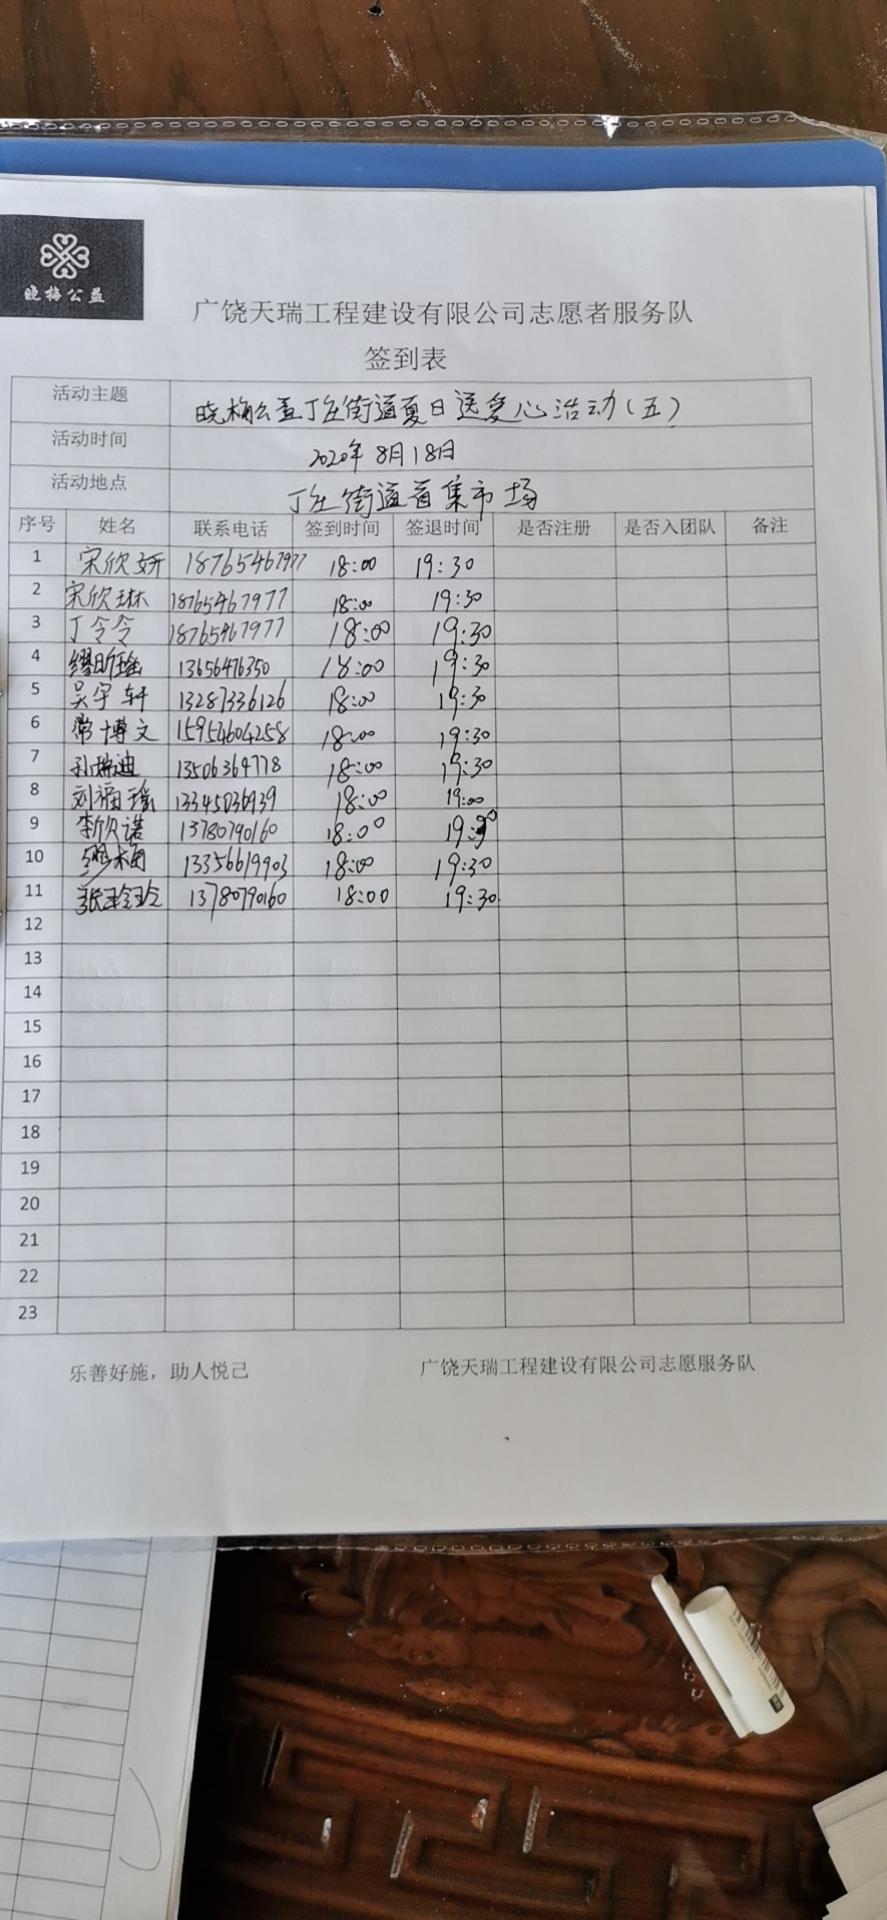 晓梅公益
广饶天瑞工程建设有限公司志愿者服务队
签到表
活动主题 晓梅公益丁庄街道夏日送爱心活动(五)
活动时间 2020年8月18日
活动地点 丁庄街道首集市场
序号 姓名 联系电话 签到时间 签退时间 是否注册 是否入团队 备注
1 宋欣妍 18765467977 18:00 19:30
2 宋欣琳 18765467977 18:00 19:30
3 丁令令 18765467977 18:00 19:30
4 缪昕瑶 13656476350 18:00 19:30
5 吴宇轩 13287336126 18:00 19:30
6 常博文 15954604258 18:00 19:30
7 孙瑞迪 13506364778 18:00 19:30
8 刘福瑶 13345036939 18:00 19:00
9 李欣诺 13780790160 18:00 19:30
10 缪梅 13356619903 18:00 19:30
11 张玲玲 13780790160 18:00 19:30
12
13
14
15
16
17
18
19
20
21
22
23
乐善好施，助人悦己 广饶天瑞工程建设有限公司志愿服务队